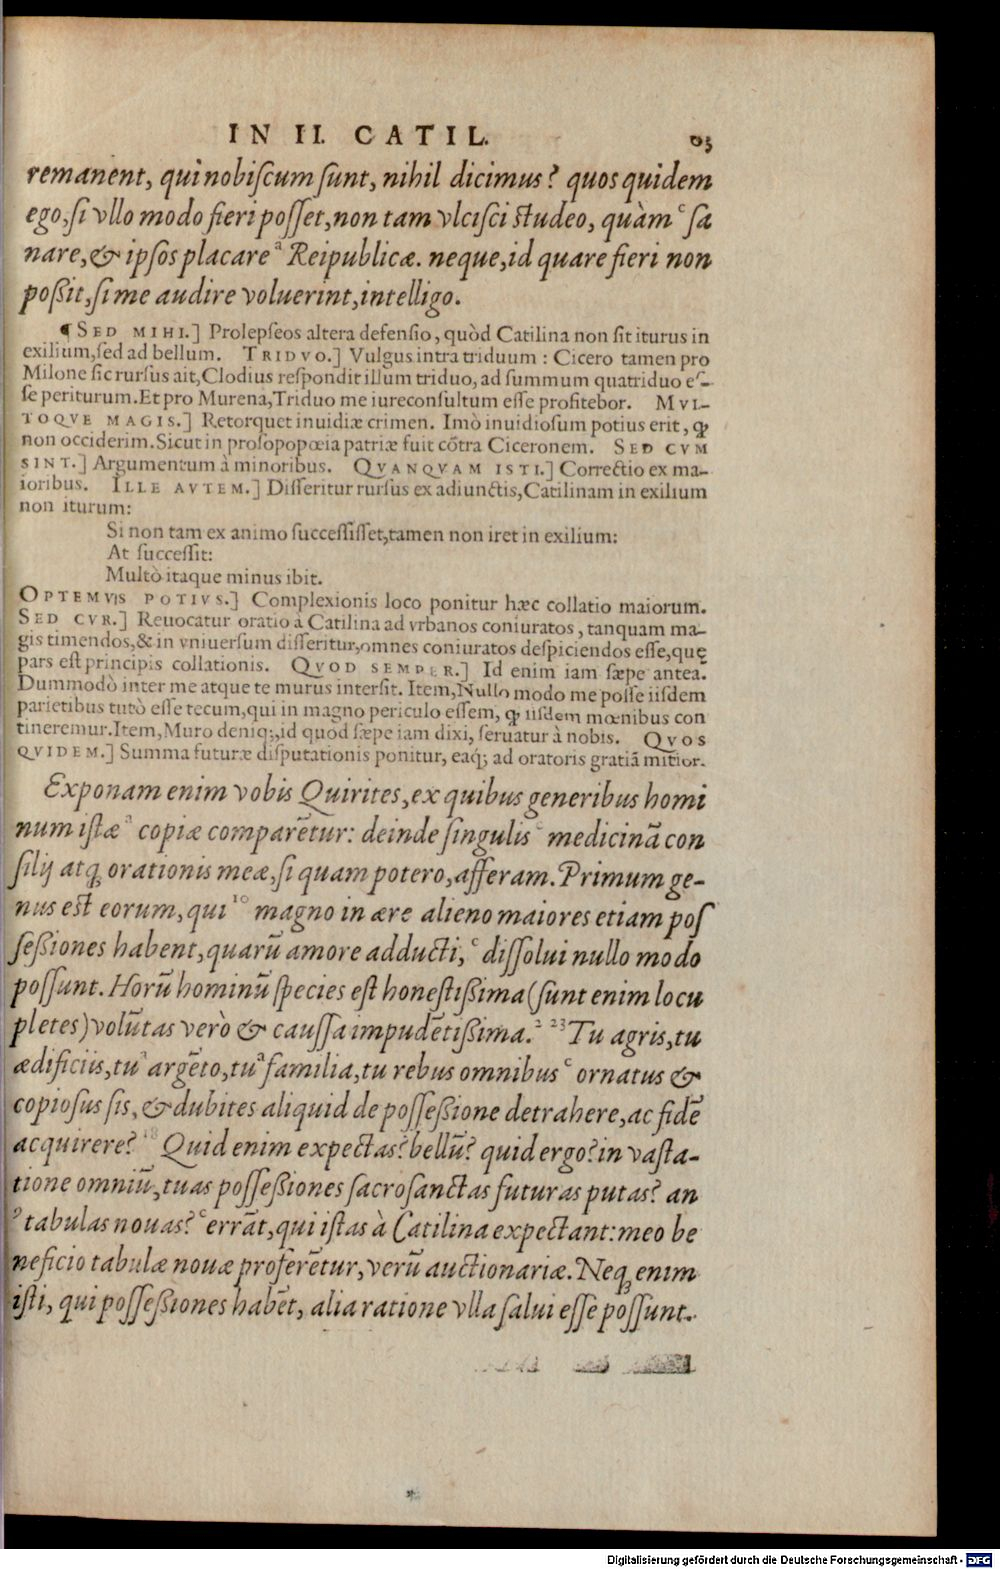 IN II. CATIL.
remanent, qui nobiſcum ſunt, nihil dicimus? quos quidem
ego, ſi vllo modo fieri poſſet, non tam vlciſci ſtudeo, quàm ᶜ ſa
nare, & ipſos placare ᵃ Reipublicæ. neque, id quare fieri non
poßit, ſi me audire voluerint, intelligo.
¶ SED MIHI.] Prolepſeos altera defenſio, quòd Catilina non ſit iturus in
exilium, ſed ad bellum. TRIDVO.] Vulgus intra triduum : Cicero tamen pro
Milone ſic rurſus ait, Clodius reſpondit illum triduo, ad ſummum quatriduo eſ-
ſe periturum. Et pro Murena, Triduo me iureconſultum eſſe profitebor. MVL-
TOQVE MAGIS.] Retorquet inuidiæ crimen. Imò inuidioſum potius erit, ꝙ
non occiderim. Sicut in proſopopœia patriæ fuit cõtra Ciceronem. SED CVM
SINT.] Argumentum à minoribus. QVANQVAM ISTI.] Correctio ex ma-
ioribus. ILLE AVTEM.] Diſſeritur rurſus ex adiunctis, Catilinam in exilium
non iturum:
Si non tam ex animo ſucceſſiſſet, tamen non iret in exilium:
At ſucceſſit:
Multò itaque minus ibit.
OPTEMVS POTIVS.] Complexionis loco ponitur hæc collatio maiorum.
SED CVR.] Reuocatur oratio à Catilina ad vrbanos coniuratos, tanquam ma-
gis timendos, & in vniuerſum diſſeritur, omnes coniuratos deſpiciendos eſſe, quę
pars eſt principis collationis. QVOD SEMPER.] Id enim iam ſæpe antea.
Dummodò inter me atque te murus interſit. Item, Nullo modo me poſſe iiſdem
parietibus tutò eſſe tecum, qui in magno periculo eſſem, ꝙ iiſdem mœnibus con
tineremur. Item, Muro deniq;, id quod ſæpe iam dixi, ſeruatur à nobis. QVOS
QVIDEM.] Summa futuræ diſputationis ponitur, eaq; ad oratoris gratiã mitior.
Exponam enim vobis Quirites, ex quibus generibus homi
num iſtæ ᵃ copiæ comparẽtur: deinde ſingulis ᶜ medicinã con
ſilij atq; orationis meæ, ſi quam potero, afferam. Primum ge-
nus eſt eorum, qui ¹⁰ magno in ære alieno maiores etiam poſ
ſeßiones habent, quarũ amore adducti, ᶜ diſſolui nullo modo
poſſunt. Horũ hominũ ſpecies eſt honeſtißima (ſunt enim locu
pletes) volũtas verò & cauſſa impudẽtißima. ² ²³ Tu agris, tu
ædificiis, tu ᵃ argẽto, tu ᵃ familia, tu rebus omnibus ᶜ ornatus &
copioſus ſis, & dubites aliquid de poſſeßione detrahere, ac fidẽ
acquirere? ¹⁸ Quid enim expectas? bellũ? quid ergo? in vaſta-
tione omniũ, tuas poſſeßiones ſacroſanctas futuras putas? an
ᵃ tabulas nouas? ᶜ errãt, qui iſtas à Catilina expectant: meo be
neficio tabulæ nouæ proferẽtur, verũ auctionariæ. Neq; enim
iſti, qui poſſeßiones habẽt, alia ratione vlla ſalui eſſe poſſunt.
Digitalisierung gefördert durch die Deutsche Forschungsgemeinschaft - DFG